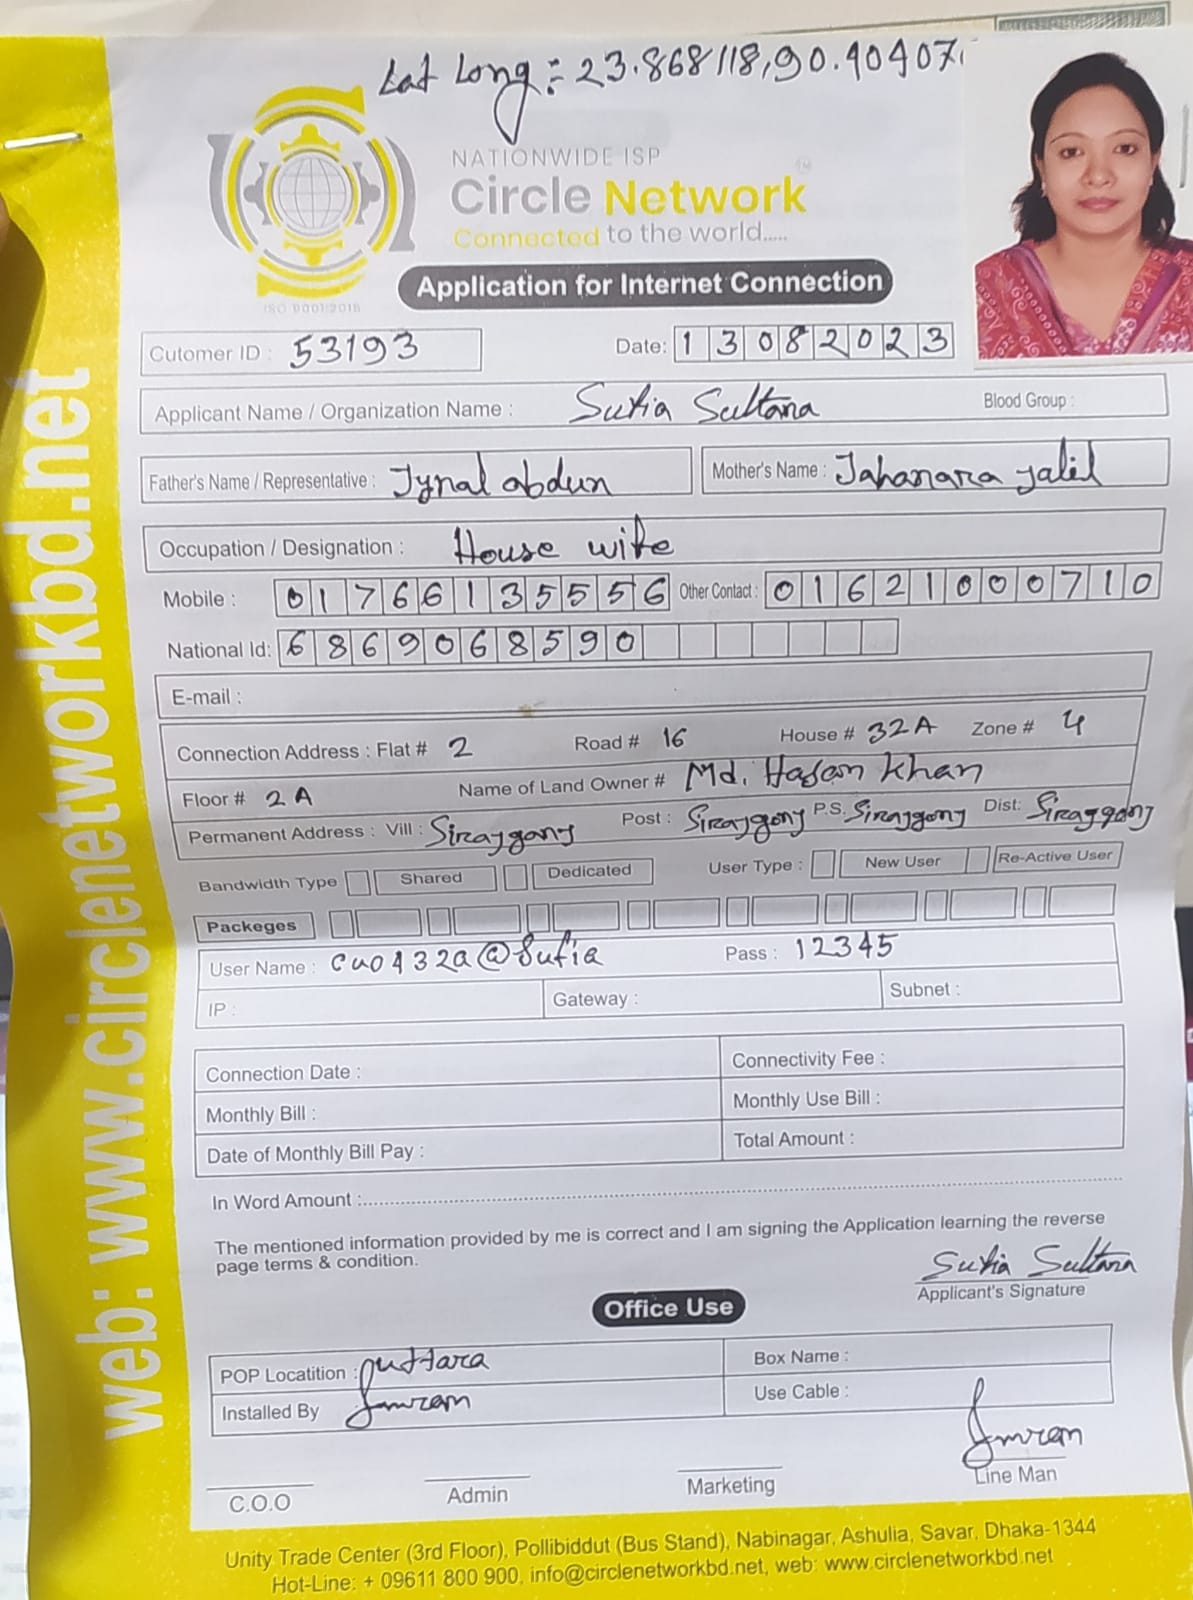 Lat Long: 23.868118,90.40407
NATIONWIDE ISP
Circle Network
Connected to the world.....
ISO 9001:2015
Application for Internet Connection
Cutomer ID : 53193 Date: 13082023
Applicant Name / Organization Name : Sufia Sultana Blood Group :
Father's Name / Representative : Jynal abdun Mother's Name : Jahanara jalil
Occupation / Designation : House wife
Mobile : 01766135556 Other Contact : 01621000710
National Id: 6869068590
E-mail :
Connection Address : Flat # 2 Road # 16 House # 32A Zone # 4
Floor # 2A Name of Land Owner # Md. Hasan Khan
Permanent Address : Vill : Sirajgong Post : Sirajgong P.S. Sirajgong Dist: Sirajgong
Bandwidth Type Shared Dedicated User Type : New User Re-Active User
Packeges
User Name : cuo432a@Sufia Pass : 12345
IP : Gateway : Subnet :
Connection Date : Connectivity Fee :
Monthly Bill : Monthly Use Bill :
Date of Monthly Bill Pay : Total Amount :
In Word Amount :
The mentioned information provided by me is correct and I am signing the Application learning the reverse
page terms & condition.
Sufia Sultana
Applicant's Signature
Office Use
POP Locatition : outtara Box Name :
Installed By Imran Use Cable :
Imran
C.O.O Admin Marketing Line Man
Unity Trade Center (3rd Floor), Pollibiddut (Bus Stand), Nabinagar, Ashulia, Savar, Dhaka-1344
Hot-Line: + 09611 800 900, info@circlenetworkbd.net, web: www.circlenetworkbd.net
web: www.circlenetworkbd.net